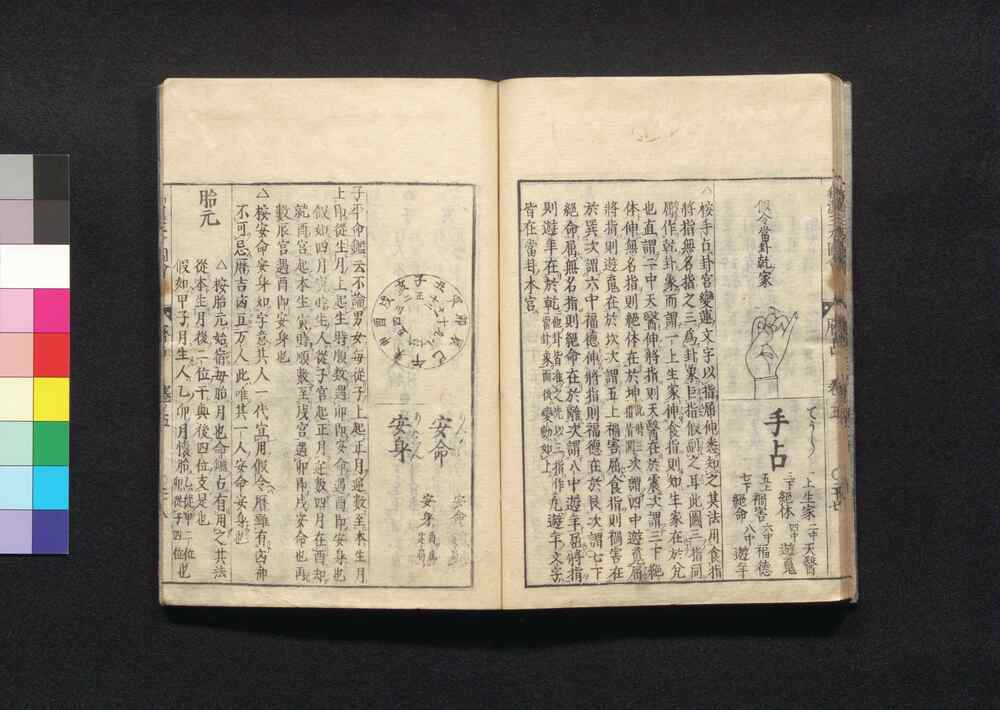 手占
てうら
假令當卦乾家
一上生家 二中天醫
三下絶体 四中遊䰟
五上禍害 六中福德
七下絶命 八中遊年
△按手占卦宮變蓮文字以指屈伸悉知之其法用食指
將指無名指之三為卦累巨指假副之耳此圖三指同
屈作乾卦象而謂一上生家伸食指則知生家在於兌
也直謂二中天醫伸將指則天醫在於震次謂三下絶
体伸無名指則絶体在於坤次謂四中遊䰟屈
將指則遊䰟在於坎次謂五上禍害屈食指則禍害在
於巽次謂六中福德伸將指則福德在於艮次謂七下
絶命屈無名指則絶命在於離次謂八中遊年屈將指
則遊年在於乾
皆在當卦本宮
安命
安身
子丑寅卯辰巳午未申酉戌亥
子平命鑑云不論男女每從子上起正月逆數至本生月
上即從生月上起生時順數遇卯即安命遇酉即安身也
假如四月寅時生人從子宮起正月逆數四月在酉却
就酉宮起本生寅時順數至戌宮遇卯即戌安命也再
數辰宮遇酉即安身也
△按安命安身如字意其人一代宜用假令曆雖有凶卯
不可忌曆吉凶亘万人此唯其一人安命安身也
胎元
△按胎元始宿母胎月也命鑑占有用之其法
從本生月後二位干與後四位支是也
假如甲子月生人乙卯月懷胎